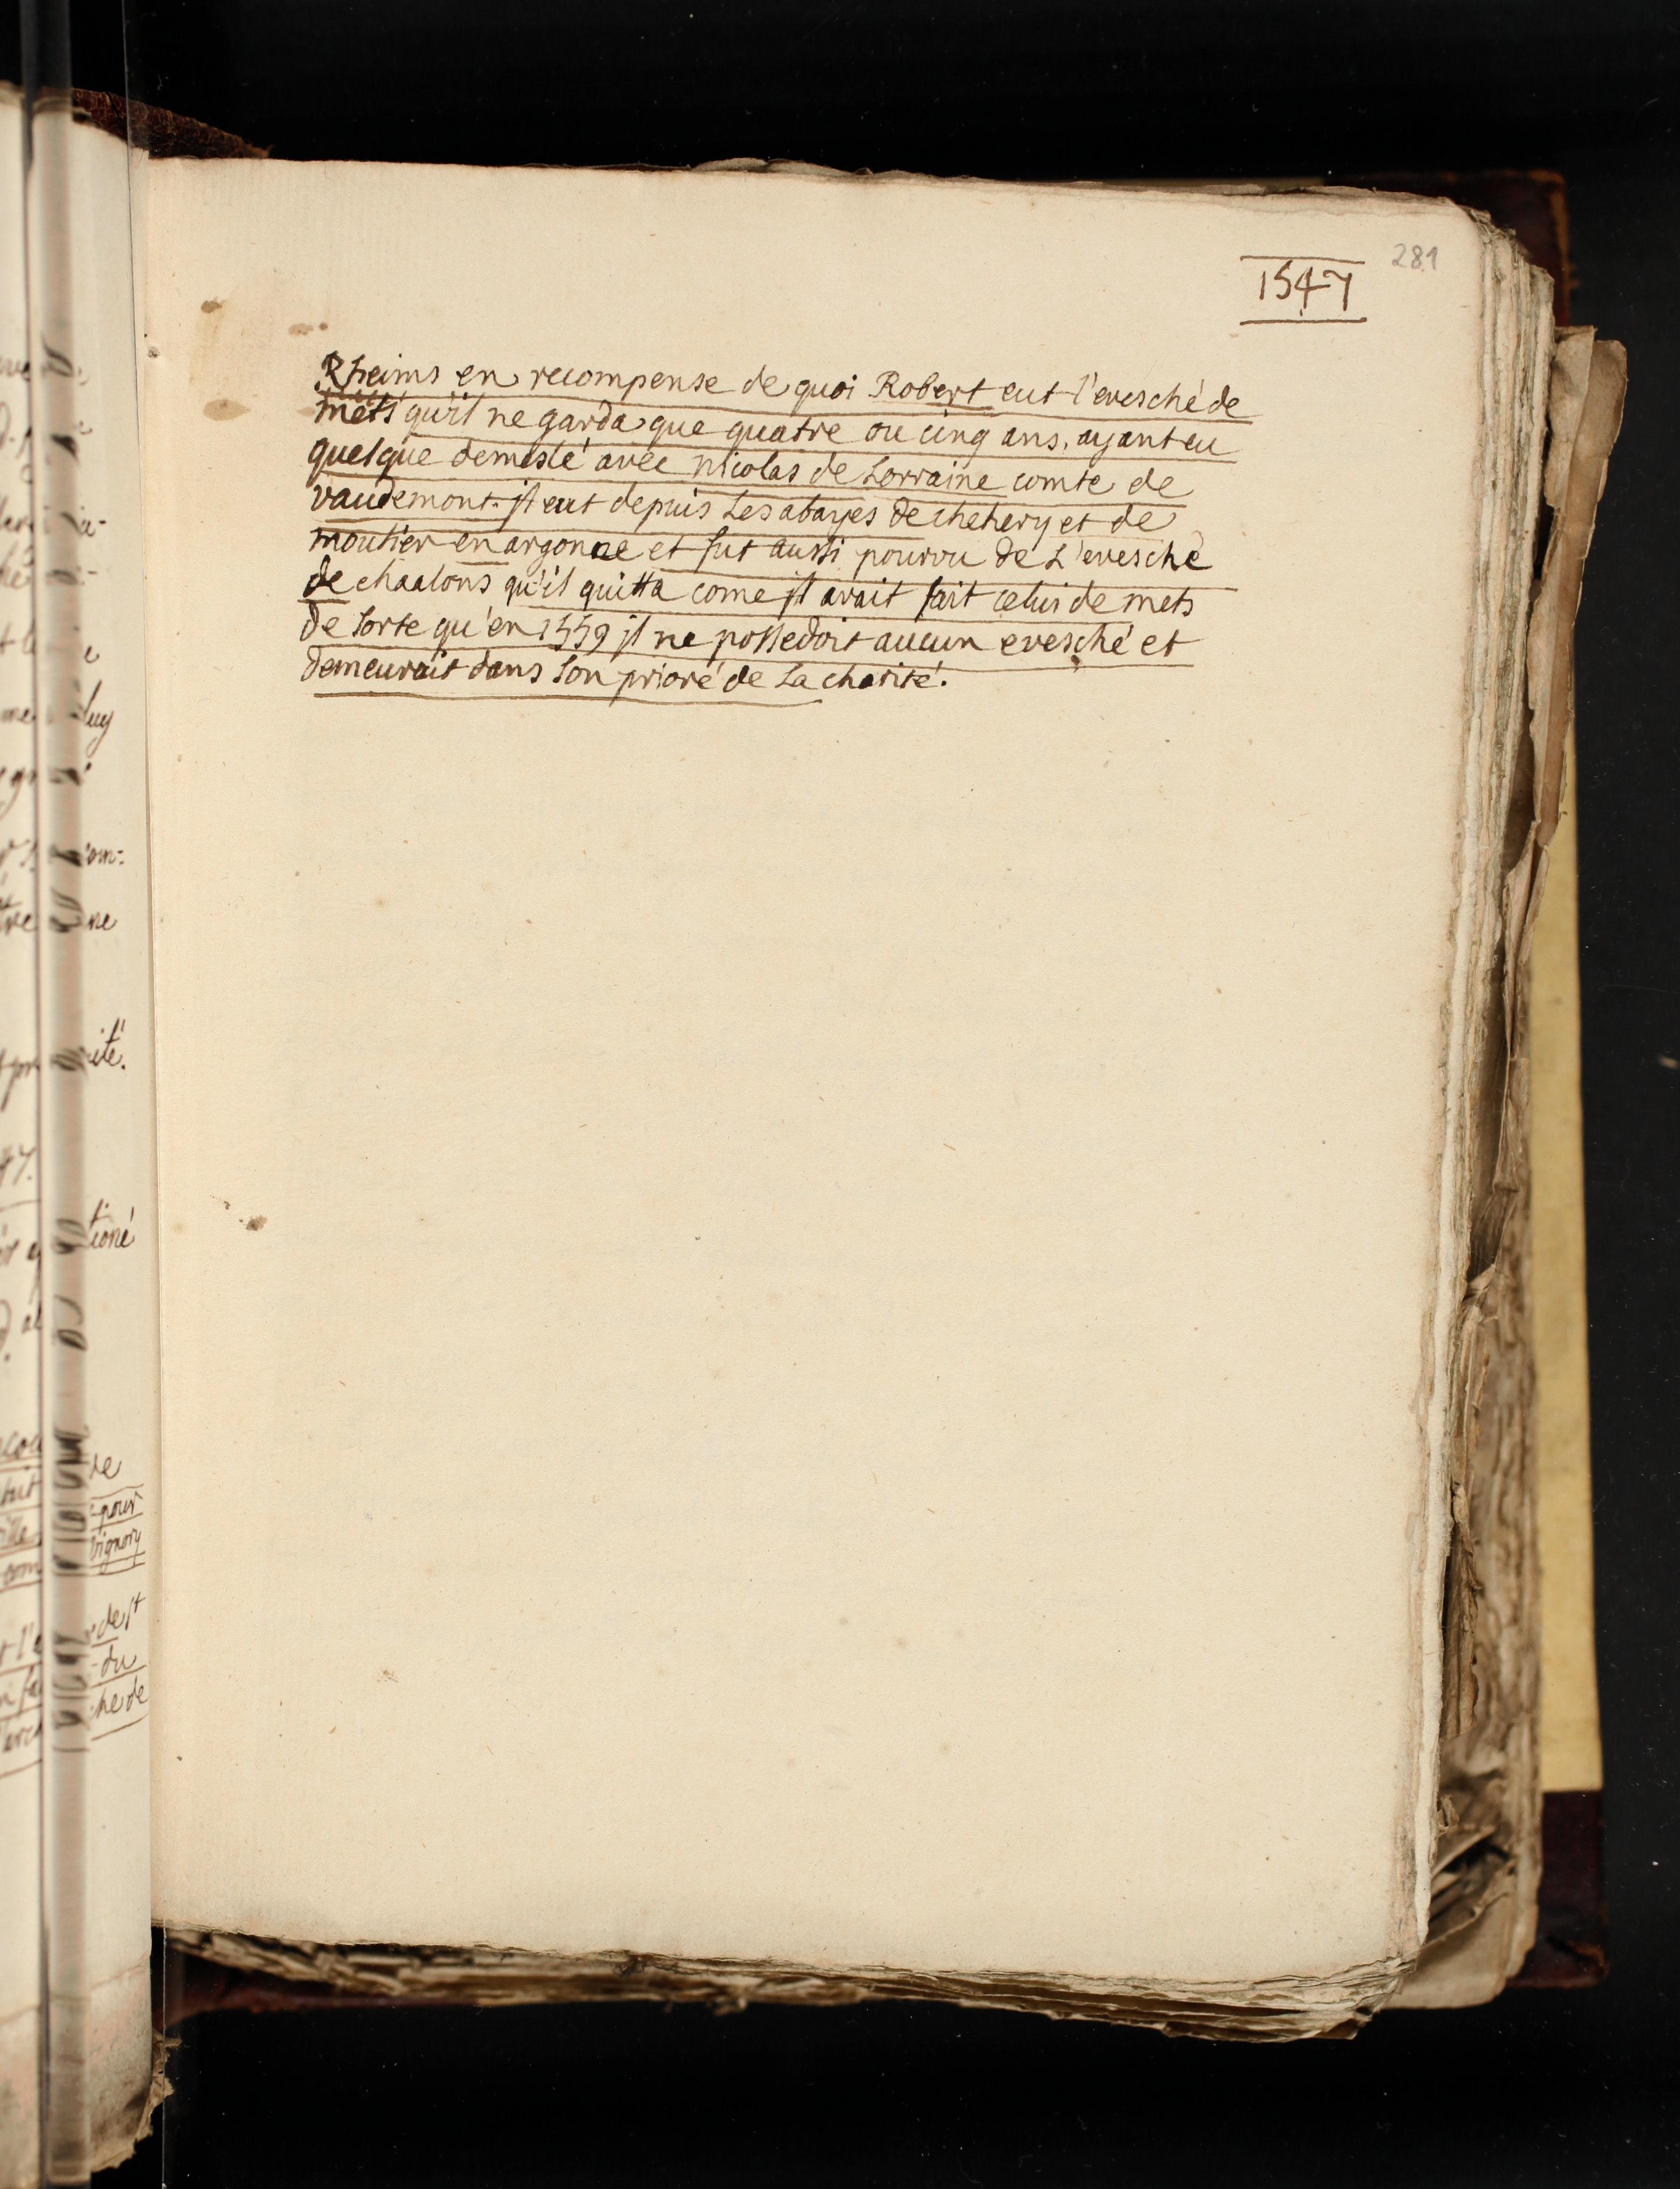 281
1547
Rheims en recompense de quoi Robert eut l'evesché de
mets qu'il ne garda que quatre ou cinq ans, ayant eu
quelque demeslé avec nicolas de Lorraine comte de
vaudemont. jl eut depuis Les abayes de chehery et de
moutier en argonne et fut aussi pourvu de L'evesché
de chaalons qu'il quitta come jl avait fait celui de mets
de sorte qu'en 1559 jl ne possedoit aucun evesché et
demeurait dans son prioré de La charité.